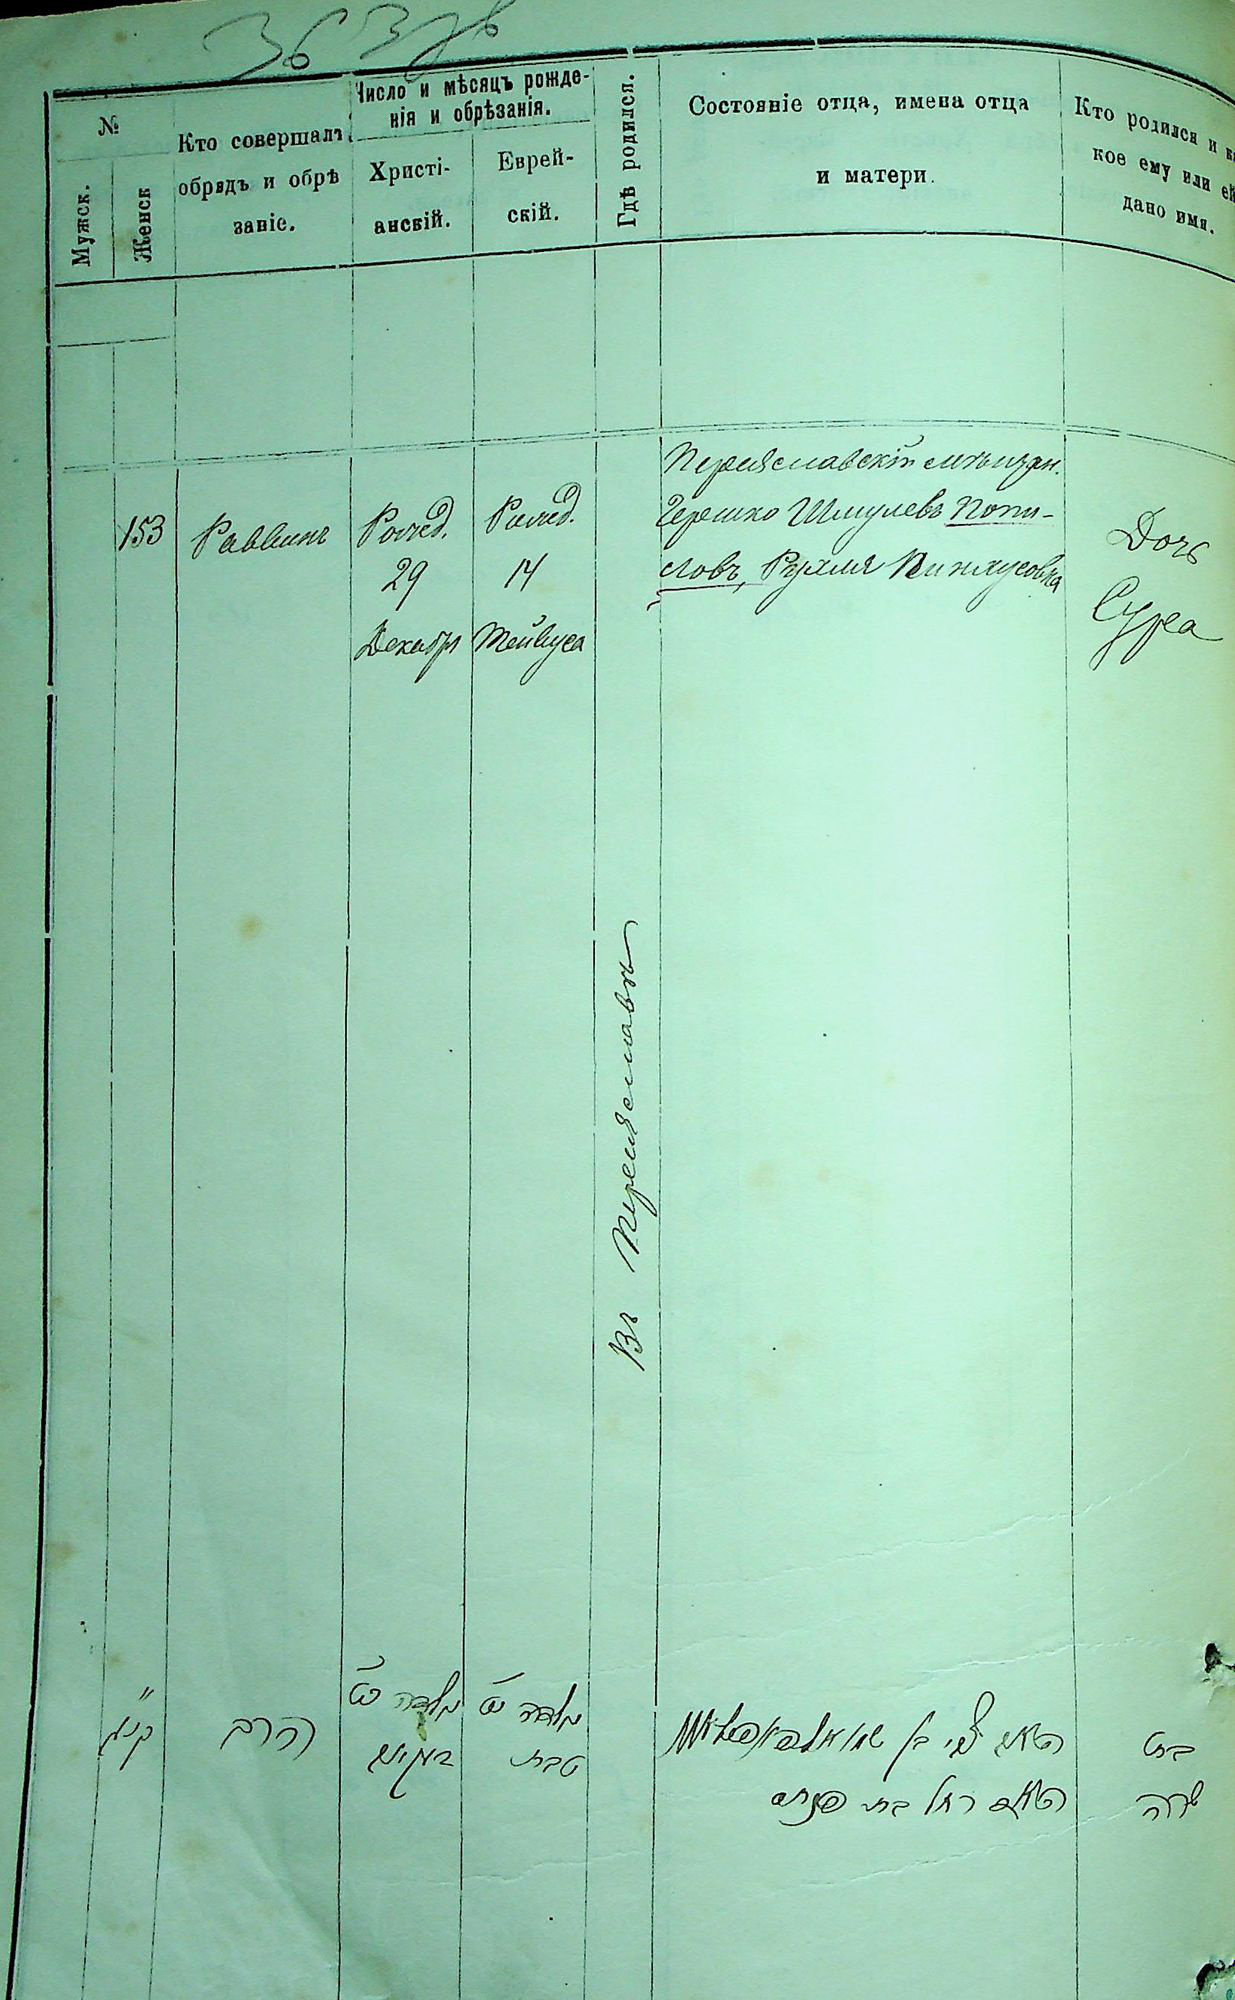 №
Мужск.
Женск
Кто совершалъ
обрядъ и обрѣ
заніе.
Число и мѣсяцъ рожде-
нія и обрѣзанія.
Христі-
анскій.
Еврей-
скій.
Гдѣ родился.
Состояніе отца, имена отца
и матери.
Кто родился и ка
кое ему или ей
дано имя.
153
Раввинъ
Рожд.
29
Декабр
Рожд.
14
Тейвуса
Въ Переяславѣ
Переяславскій мѣщан.
Герешко Шмулевъ Попи-
словъ, Рухля Пинхусовна
Дочь
Сура
קנג
הרב
נולדה
נולדה
טבת
בת
רחל בת פנחס
שרה